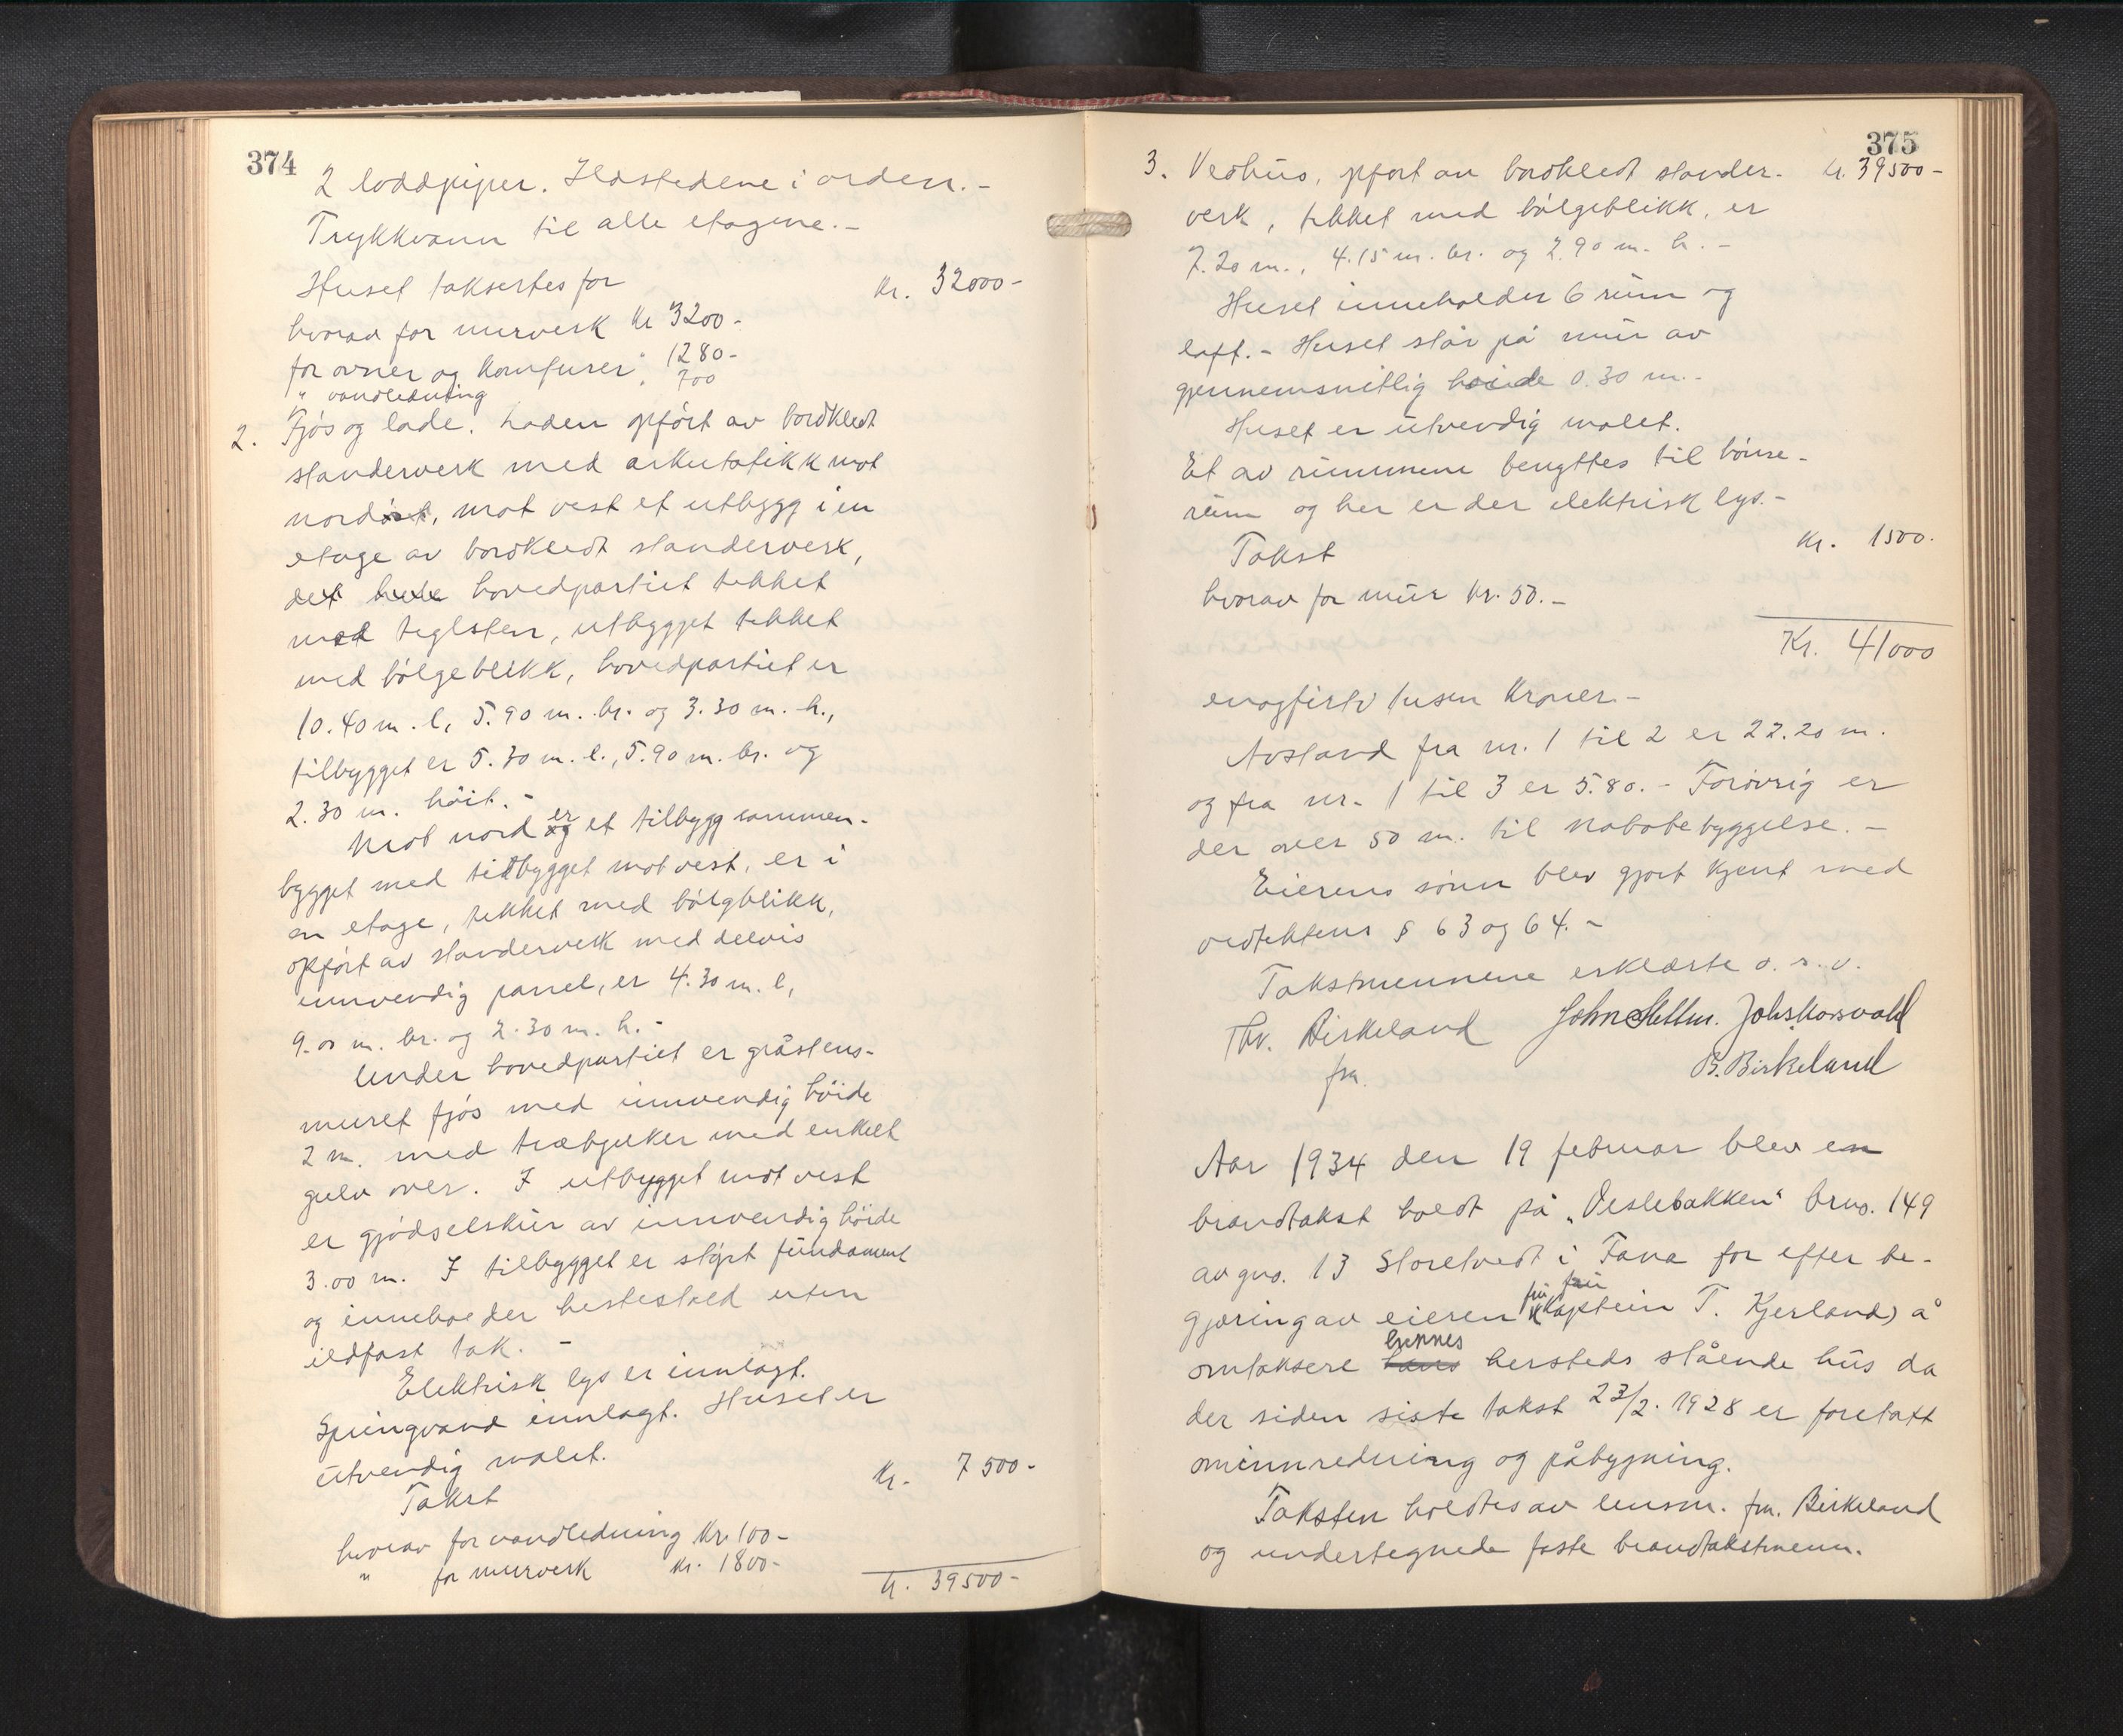 374
2 loddpiper. Ildstedene i orden. -
Trykkvann til alle etagene. -
Huset taksertes for Kr. 32000 -
hvorav for murverk Kr 3200 -
for ovner og komfurer " 1280 -
" vandledning " 700
2. Fjøs og lade. Laden opført av bordkledt
standerverk med arkutstikk mot
nord, mot vest et utbygg i en
etage av bordkledt standerverk,
hovedpartiet tekket
med teglsten, utbygget tekket
med bølgeblikk, hovedpartiet er
10.40 m. l, 5.90 m. br. og 3.30 m. h.,
tilbygget er 5.70 m. l., 5.90 m. br. og
2.30 m. høit. -
Mot nord er et tilbygg sammen-
bygget med tilbygget mot vest, er i
en etage, tekket med bølgblikk,
opført av standerverk med delvis
innvendig panel, er 4.30 m. l,
9.00 m. br. og 2.30 m. h. -
Under hovedpartiet er gråstens-
muret fjøs med innvendig høide
2 m. med træbjelker med enkelt
gulv over. I utbygget mot vest
er gjødselskur av innvendig høide
3.00 m. I tilbygget er støpt fundament
og inneholder hestestald uten
ildfast tak. -
Elektrisk lys er innlagt.
Springvand innlagt. Huset er
utvendig malet.
Takst Kr. 7500 -
hvorav for vandledning Kr. 100 -
" for murverk Kr. 1800 -
Kr. 39500 -
375
3. Vedhus, opført av bordkledt stander- Kr. 39500 -
verk, tekket med bølgeblikk, er
7.20 m., 4.15 m. br. og 2.90 m. h. -
Huset inneholder 6 rum og
loft. - Huset står på mur av
gjennemsnitlig høide 0.30 m. -
Huset er utvendig malet.
Et av rummene benyttes til hønse-
rum og her er der elektrisk lys. -
Takst Kr. 1500.
hvorav for mur Kr. 50. -
Kr. 41000
enogførti tusen Kroner. -
Avstand fra nr. 1 til 2 er 22.20 m.
og fra nr. 1 til 3 er 5.80. - Forøvrig er
der over 50 m. til nabobebyggelse. -
Eierens sønn blev gjort kjent med
vedtektens § 63 og 64. -
Takstmennene erklærte o. s. v.
Thv. Birkeland
fm.
B. Birkeland
Aar 1934 den 19 februar blev en
brandtakst holdt på „Veslebakken" brno. 149
av gno. 13 Storetvedt i Fana for efter be-
gjæring av eieren fru Kaptein T. Kjerland) å
omtaksere hennes hersteds stående hus da
der siden siste takst 23/2. 1928 er foretatt
ominnredning og påbygning.
Taksten holdtes av lensm. fm. Birkeland
og undertegnede faste brandtakstmenn.